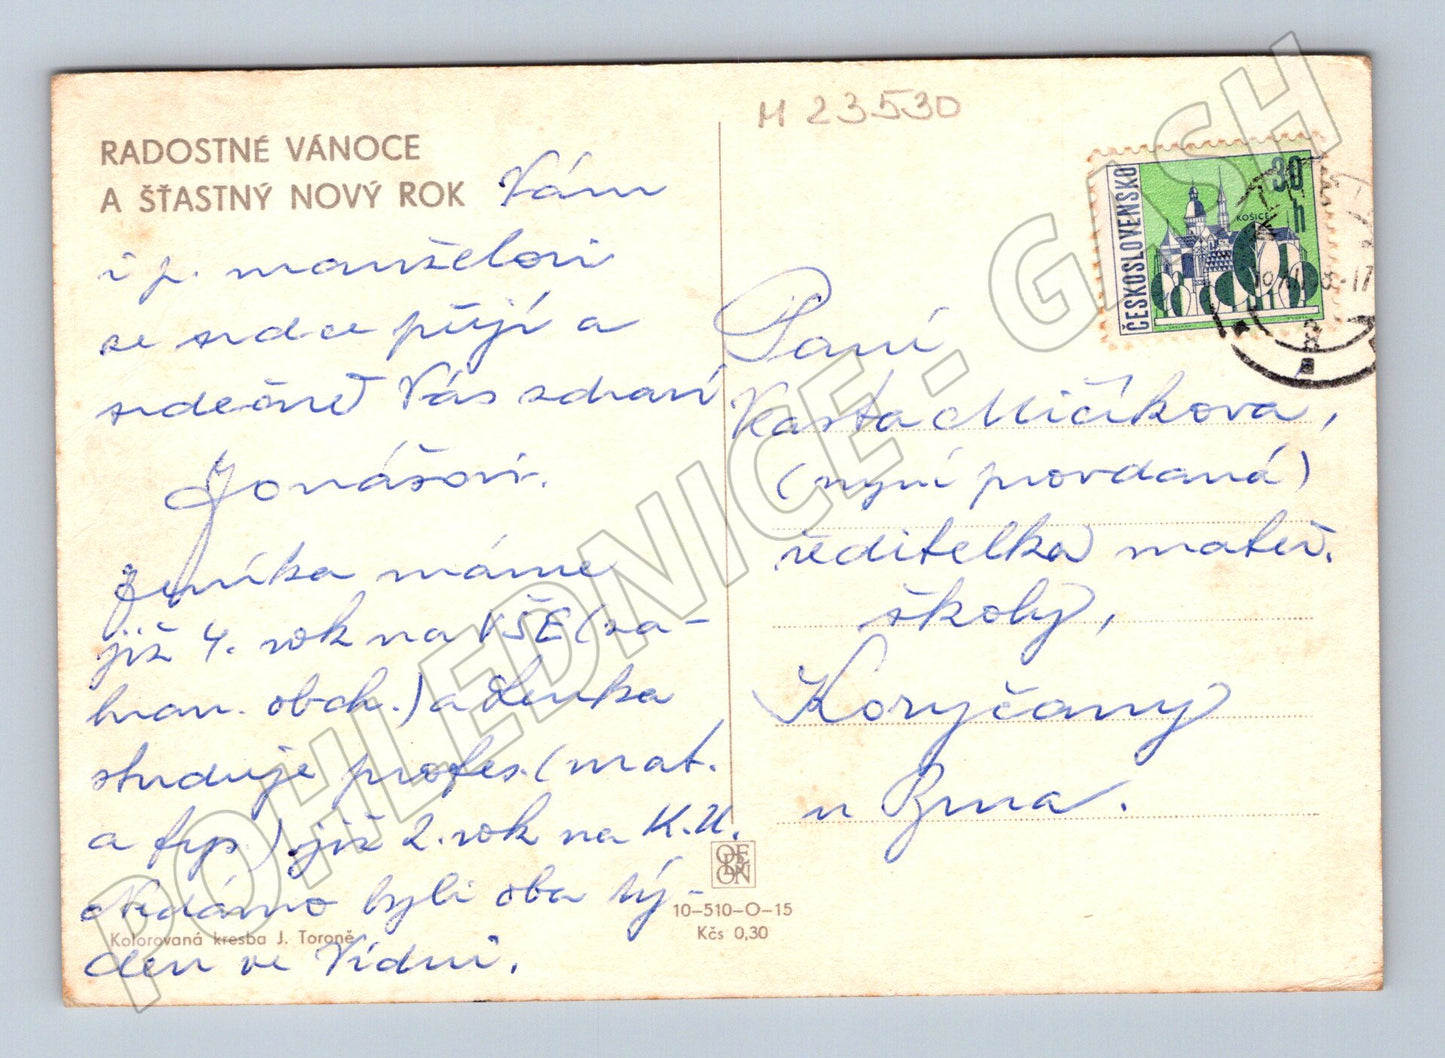 M 23530
RADOSTNÉ VÁNOCE
A ŠŤASTNÝ NOVÝ ROK Vám
i p. manželovi
ze srdce přejí a
srdečně Vás zdraví
Jonášovi.
Jeníka máme
již 4. rok na VŠE (za-
hran. obch.) a Lenka
studuje profes. (mat.
a fyp.) již 2. rok na K.U.
Nedávno byli oba tý-
den ve Vídni.
Kolorovaná kresba J. Toroně
ODEON
10-510-O-15
Kčs 0,30
ČESKOSLOVENSKO
30 h
KOŠICE
Paní
Vlasta Mičíkova,
(nyní provdaná)
ředitelka mateř.
školy,
Koryčany
u Brna.
POHLEDNICE - GASH